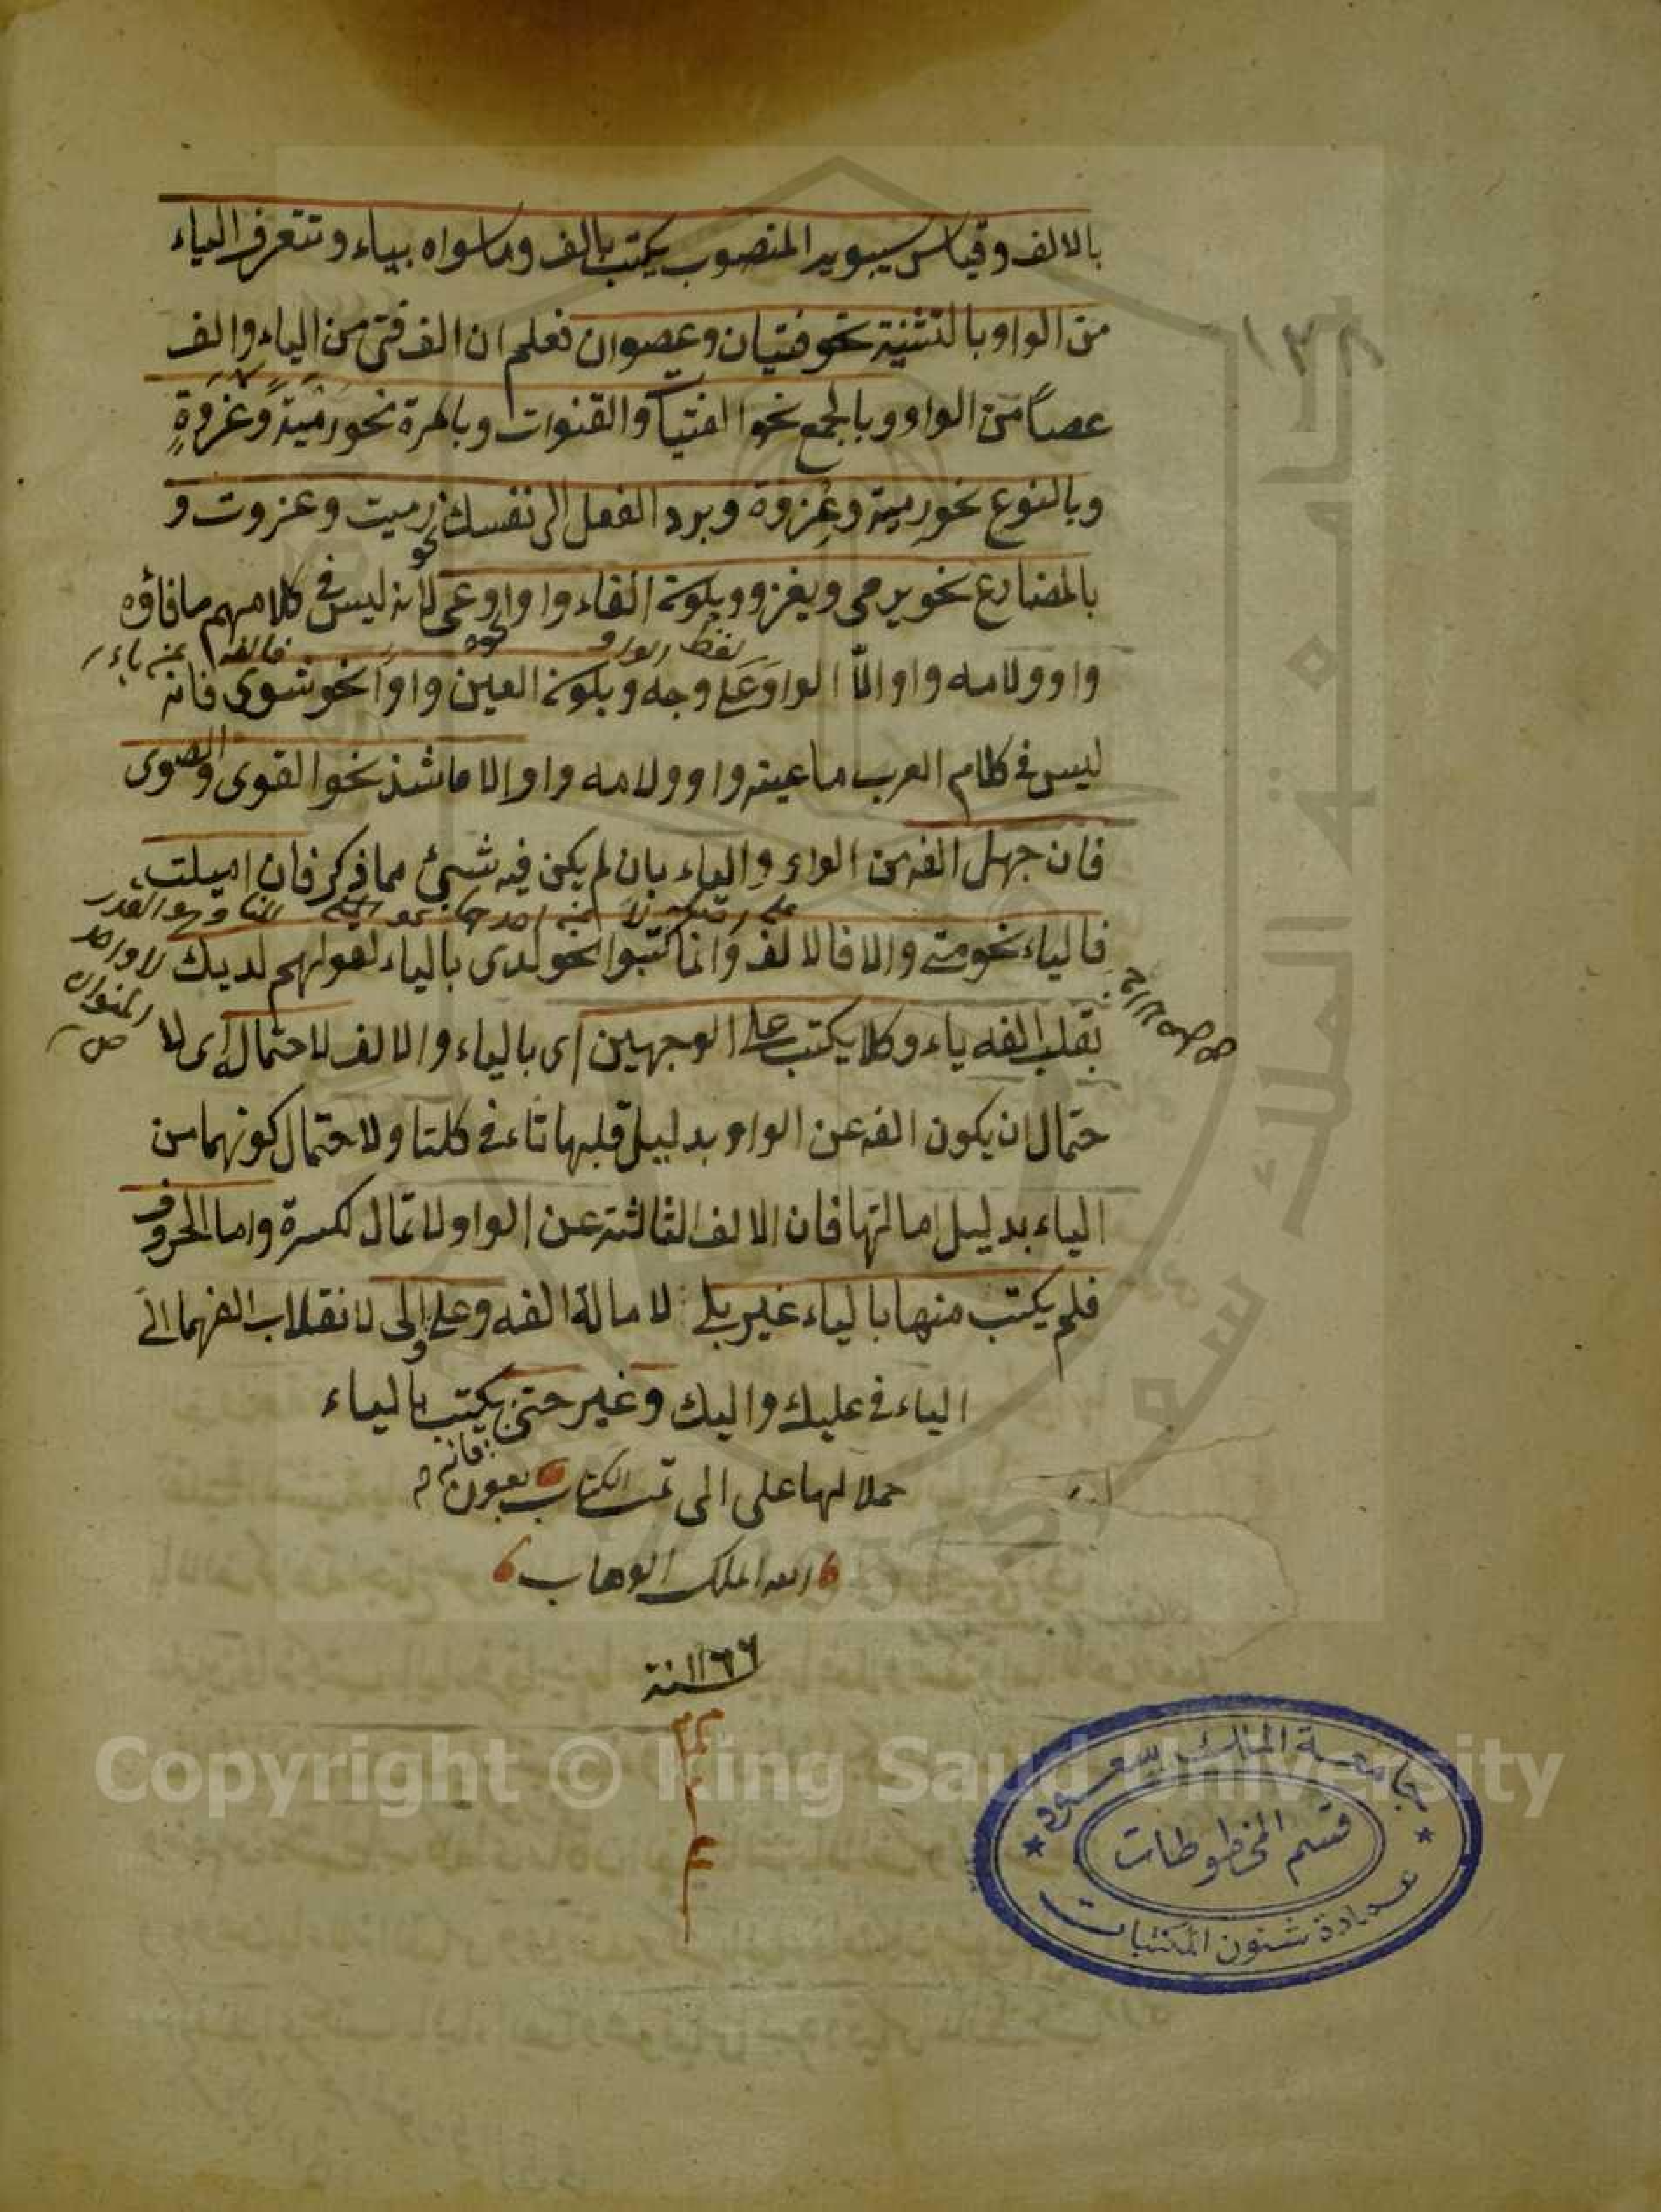 بالالف وقياس سيبويه المنصوب يكتب بالف وماسواه بياء وتتعرف الياء
من الواو بالتثنية نحو فتيان وعصوان فعلم ان الف فتى من الياء والف
عصاً من الواو وبالجمع نحو الفتيات والقنوات وبالمرة نحو رَمْيَةً وغَزْوَةٍ
وبالنوع نحو رمية وغِزوة وبرد الفعل الى نفسك نحو رميت وغزوت و
بالمضارع نحو يرمى ويغزو وبكونه الفاء واوا نحو وعى لانه ليس فى كلامهم ما فاؤه
لفظ الواو
واو ولامه واو الّا الواو على وجه وبكونه العين واواً نحو شوى فانه
ليس فى كلام العرب ما عينه واو ولامه واو الا ما شذ نحو القوى والصوى
فان جهل الفه من الواو والياء بان لم يكن فيه شئ مما ذكر فان اميلت
فالياء نحو متى والا فالالف وانما كتبوا نحو لدى بالياء لقولهم لديك
بقلب الفه ياء وكلا يكتب على الوجهين اى بالياء والالف لاحتمال اى لا
حتمال ان يكون الفه عن الواو بدليل قلبها تاء فى كلتا ولاحتمال كونهما من
الياء بدليل امالتها فان الالف الثالثة عن الواو لا تمال لكسرة واما الحروف
فلم يكتب منها بالياء غير بلى لامالة الفه وعلى والى لانقلاب الفهما الى
الياء فى عليك واليك وغير حتى يكتب بالياء
فانه
حملا لها على الى تمت الكتاب بعون
الله الملك الوهاب
١١٦٦ سنة
١٣٨
جامعة الملك سعود
قسم المخطوطات
عمادة شئون المكتبات
جامعة الملك سعود
Copyright © King Saud University